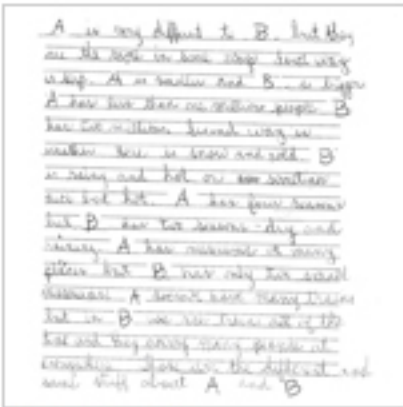 A is very different to B. but they
are the same in some ways first way
is big. A is smaller and B is bigger
A has less than one million people B
has two million. Second way is
weather here is snow and cold. B
is rainy and hot or
but hot. A has four seasons
but B has two seasons - dry and
raining. A has museums at many
places but B has only two small
museums. A doesn't have many trains
but in B we see trains all of the
time and they carry many people at
everywhere. These are the different and
same stuff about A and B